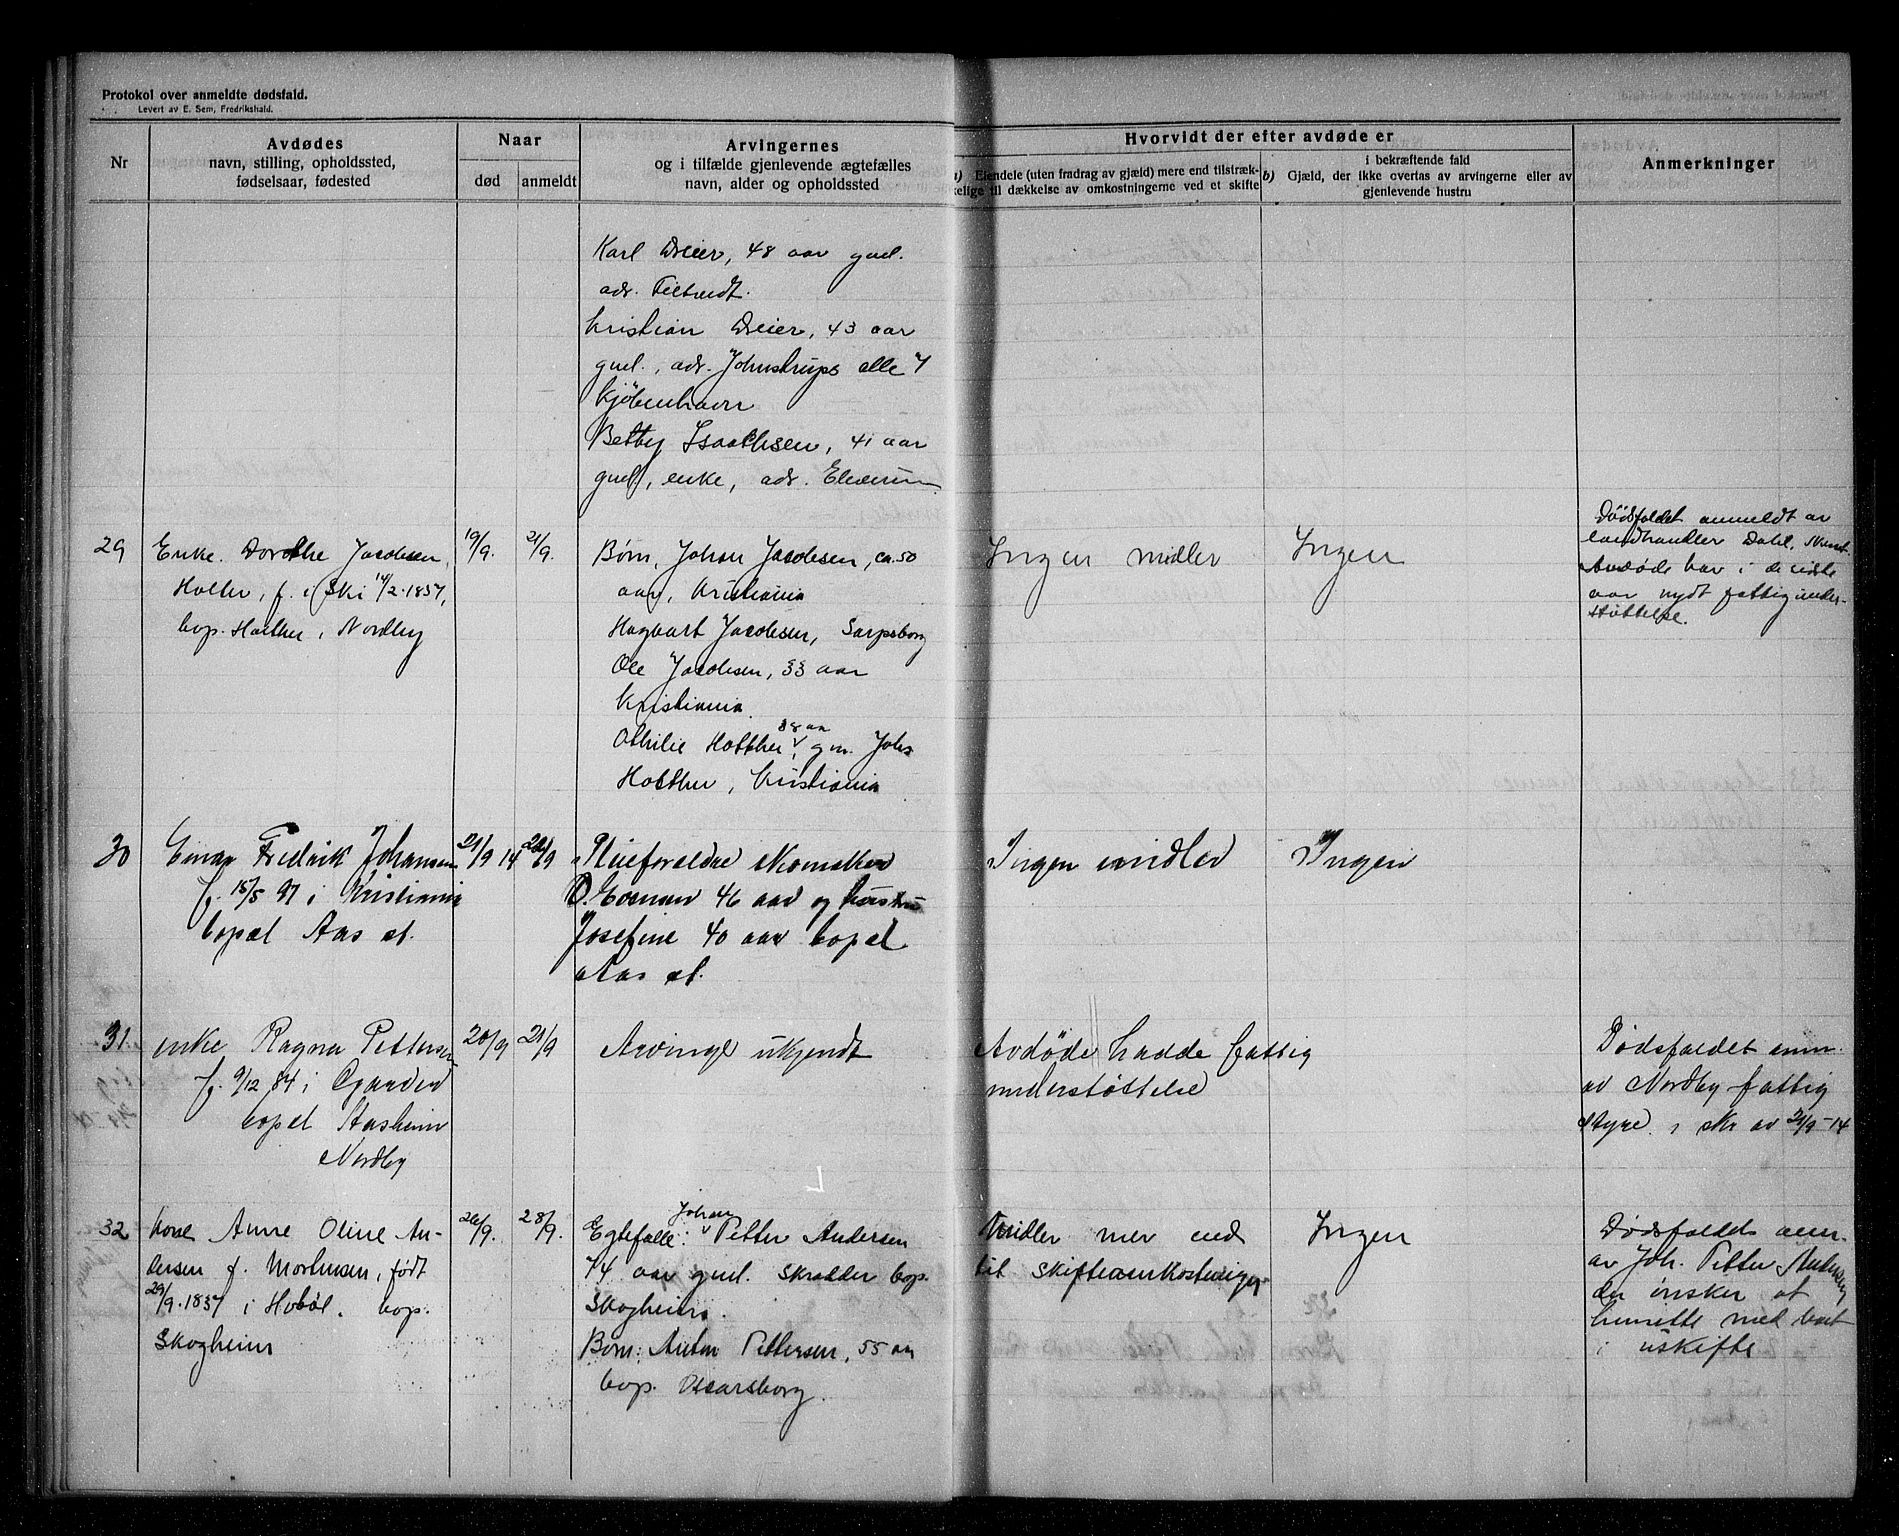 Protokol over anmeldte dødsfald.
Levert av E. Sem, Fredrikshald.
Nr
Avdødes
navn, stilling, opholdssted,
fødselsaar, fødested
Naar
død
anmeldt
Arvingernes
og i tilfælde gjenlevende ægtefælles
navn, alder og opholdssted
Hvorvidt der efter avdøde er
Eiendele (uten fradrag av gjæld) mere end tilstræk-
kelige til dækkelse av omkostningerne ved et skifte
i bekræftende fald
b) Gjæld, der ikke overtas av arvingerne eller av
gjenlevende hustru
Anmerkninger
Karl Dreier, 48 aar gml.
adr. Tistvedt.
Kristian Dreier, 43 aar
gml., adr. Johnstrups alle 7
Kjöbenhavn
Betty Isaachsen, 41 aar
gml, enke, adr. Elverum
29
Enke Dorthe Jacobsen,
Holter, f. i Ski 14/2.1837,
bop. Holther, Nordby
19/9.
21/9.
Børn, Johan Jacobsen, ca. 50
aar, Kristiania
Hagbart Jacobsen, Sarpsborg
Ole Jacobsen, 33 aar
Kristiania
38 aar
Othilie Holther, gm. Johs
Holther, Kristiania
Ingen midler
Ingen
Dödsfaldet anmeldt av
landhandler Dahl,
Avdøde har i de siste
aar nydt fattigunder-
støttelse.
30
Einar Fredrik Johansen
f. 15/5 97 i Kristiania
bopæl Aas st.
21/9 14
22/9
Pleieforældre skomaker
O. Evensen 46 aar og hustru
Josefine 40 aar bopæl
Aas st.
Ingen midler
Ingen
31.
enke Ragna Pettersen
f. 9/12 84 i
bopæl Aasheim
Nordby
20/9
21/9
Arvinge ukjendt
Avdøde hadde fattig
understøttelse
Dødsfaldet anm.
av Nordby fattig
styre i skr av 21/9-14
32
Kone Anne Oline An-
dersen f. Mortensen, født
29/9.1837 i Hobøl. bop.
Skogheim
26/9.
28/9.
Johan
Egtefælle: Petter Andersen
74 aar gml. skrædder bop.
Skogheim.
Børn: Anton Pettersen, 55 aar
bop. Oscarsborg.
Midler mer end
til skifteomkostninger
Ingen
Dødsfaldet anm.
av Joh. Petter Andersen
der ønsker at
hensitte med boet
i uskifte